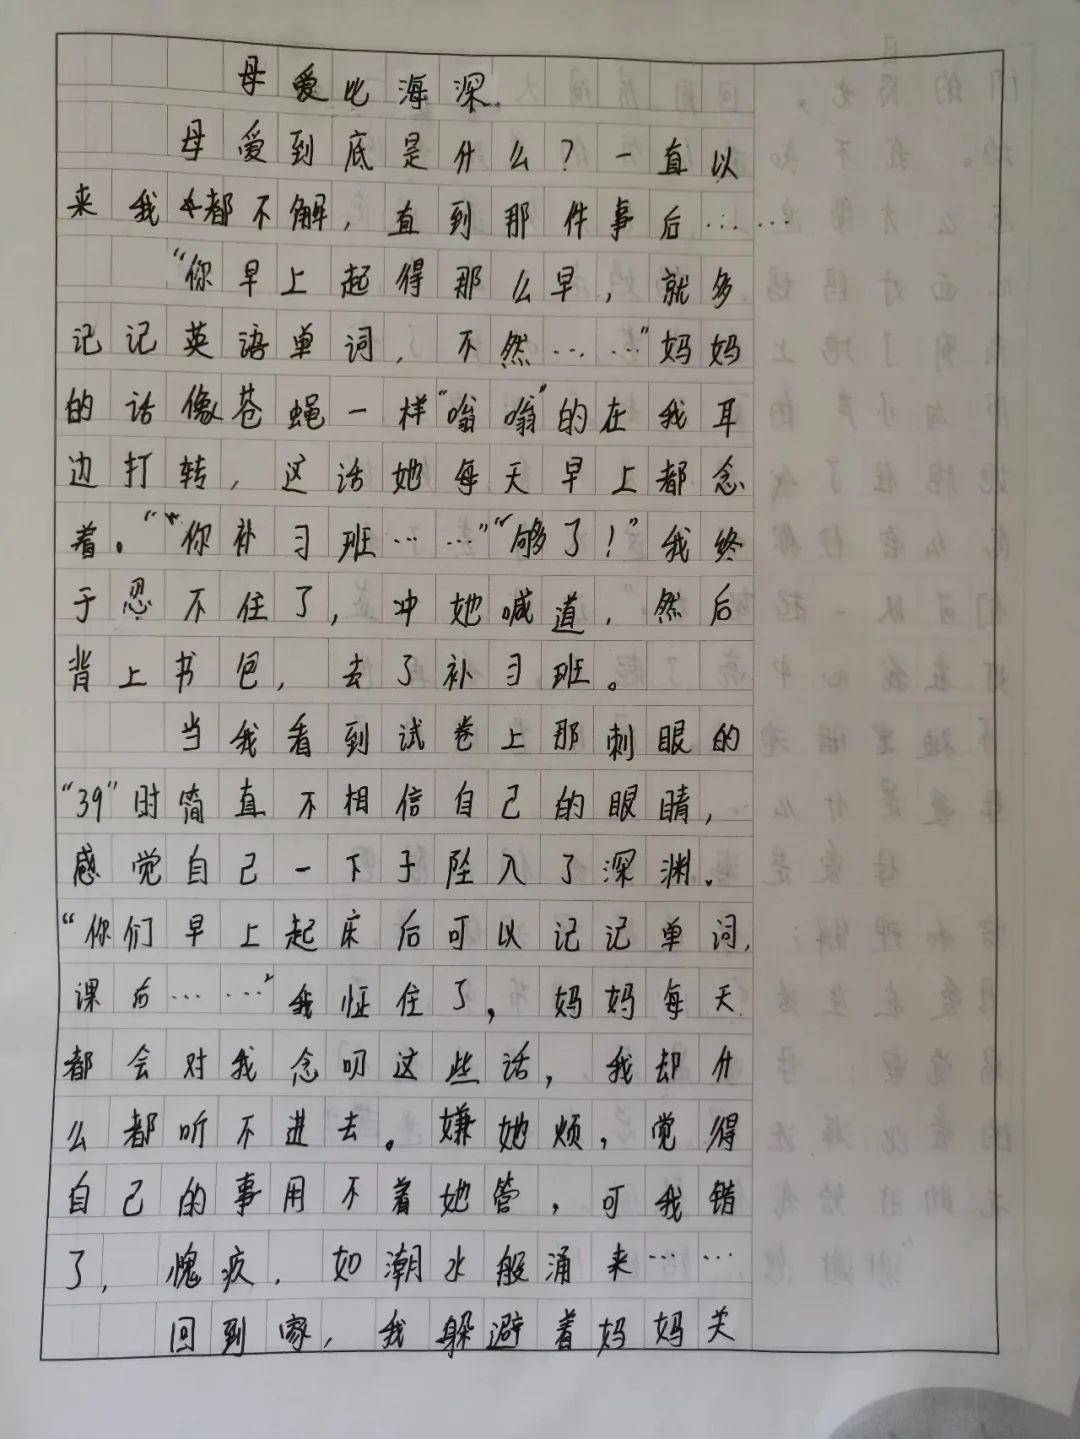 母爱比海深
母爱到底是什么？一直以
来我都不解，直到那件事后……
“你早上起得那么早，就多
记记英语单词，不然……”妈妈
的话像苍蝇一样“嗡嗡”的在我耳
边打转，这话她每天早上都念
着。“你补习班……”“够了！”我终
于忍不住了，冲她喊道，然后
背上书包，去了补习班。
当我看到试卷上那刺眼的
“39”时简直不相信自己的眼睛，
感觉自己一下于坠入了深渊.
“你们早上起床后可以记记单词，
课后……”我怔住了，妈妈每天
都会对我念叨这些话，我却什
么都听不进去。嫌她烦，觉得
自己的事用不着她管，可我错
了，愧疚，如潮水般涌来……
回到家，我躲避着妈妈关